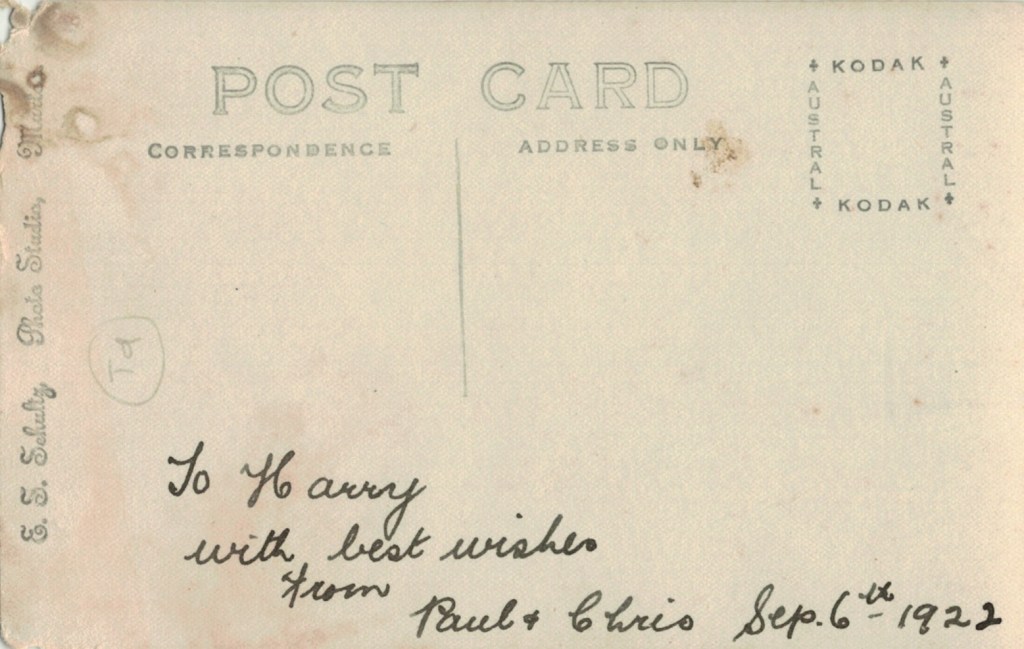 POST CARD
CORRESPONDENCE
ADDRESS ONLY
KODAK
AUSTRAL
AUSTRAL
KODAK
Photo Studio,
Schultz
To Harry
with best wishes
from
Paul & Chris Sep. 6th 1922